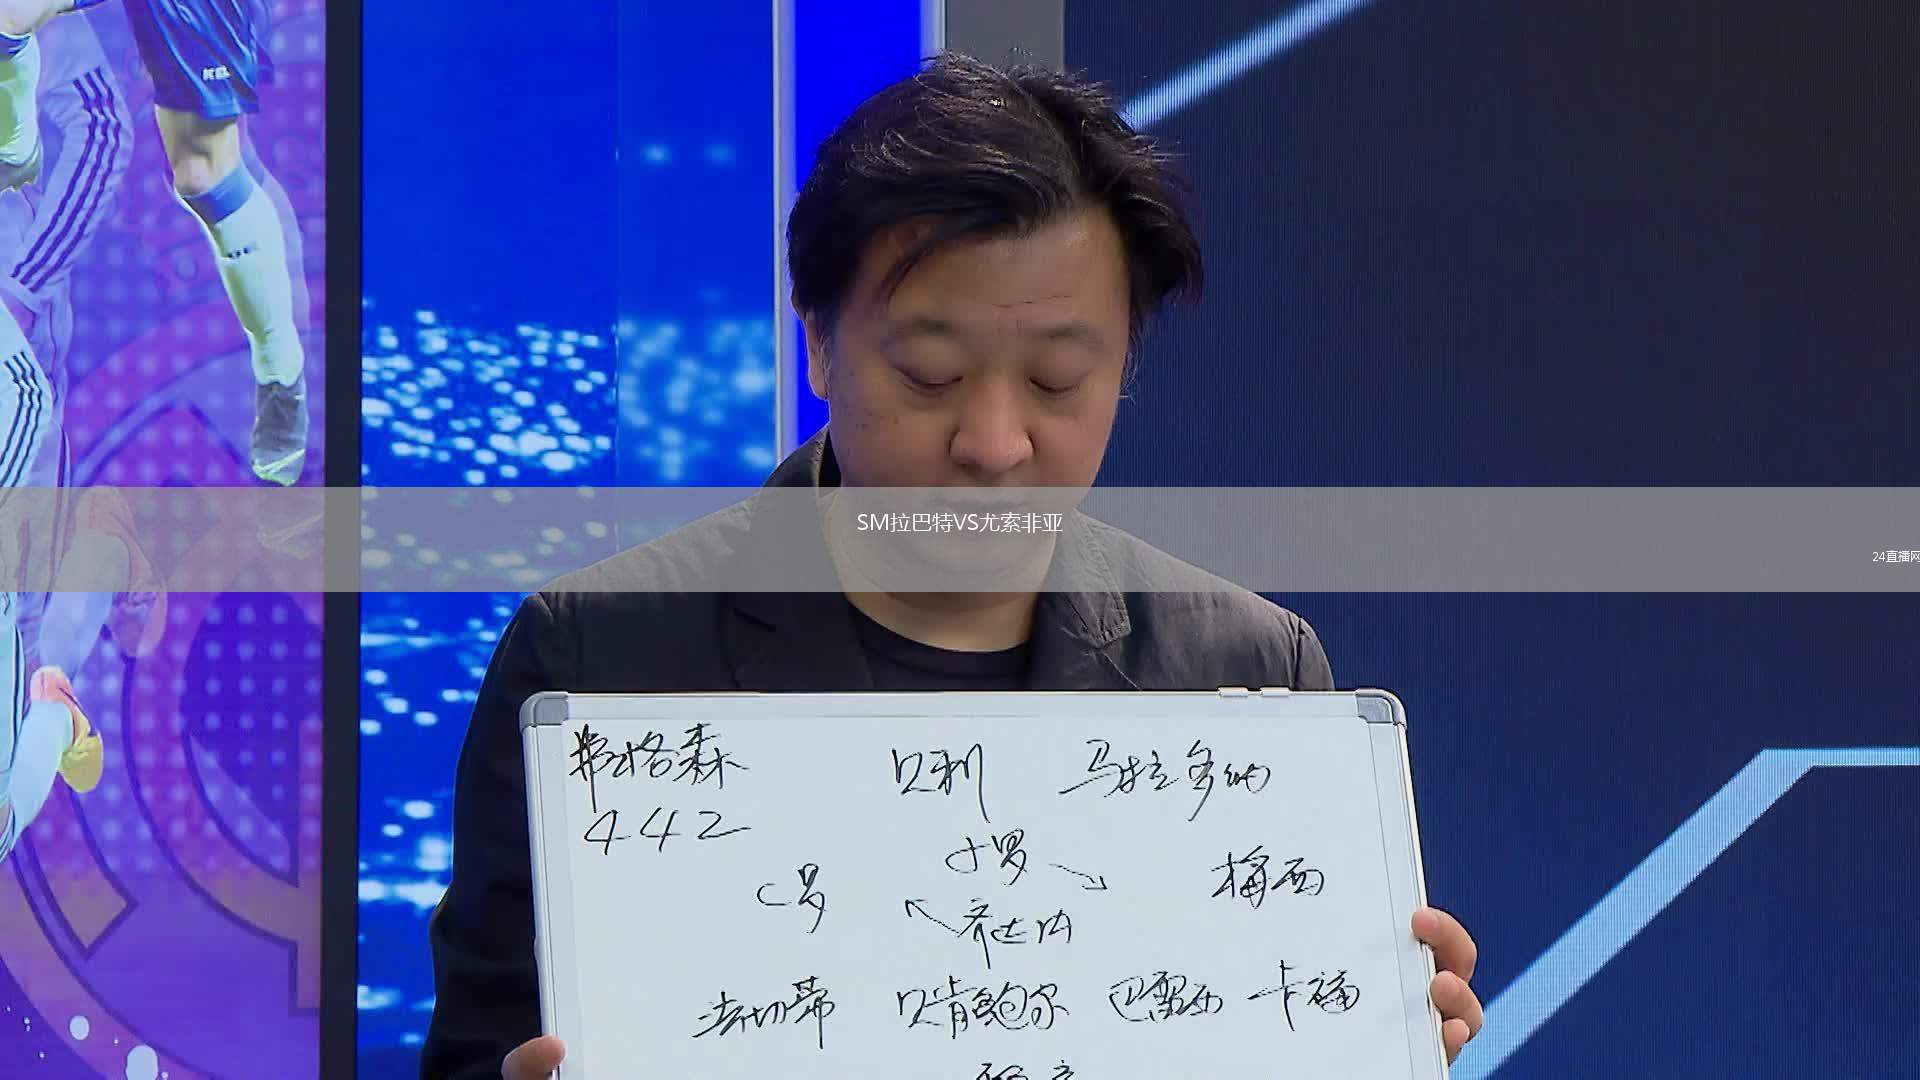 SM拉巴特VS尤索非亚
24直播网
弗格森
442
贝利 马拉多纳
小罗
C罗 梅西
齐达内
法切蒂 贝肯鲍尔 巴雷西 卡福